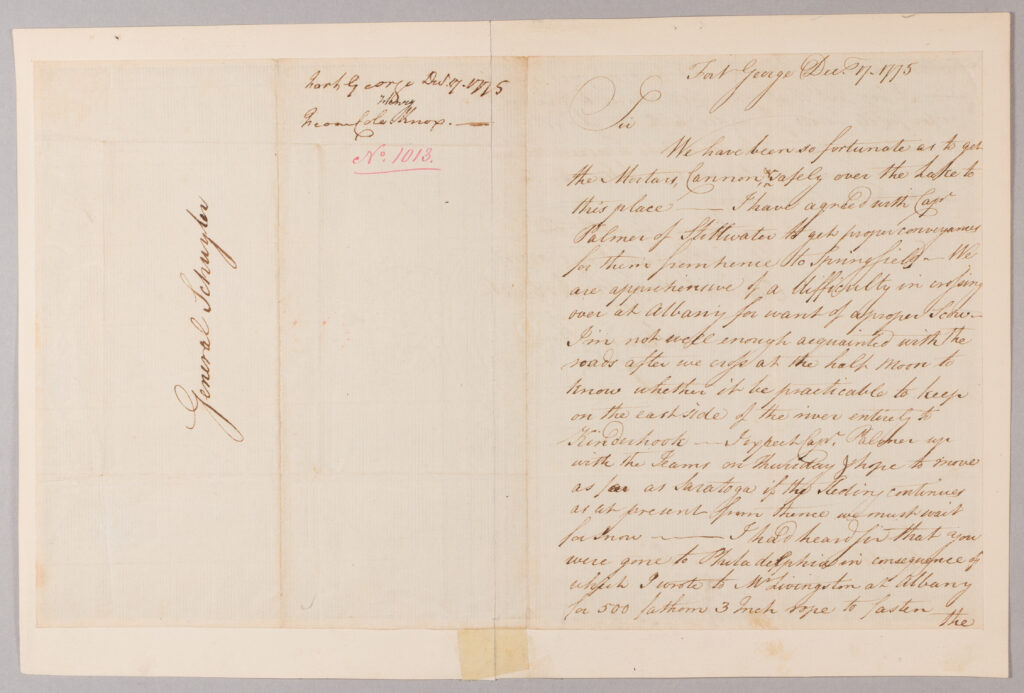 Fort George Dec. 17. 1775
From Colo Henry Knox. —
No. 1013.
General Schuyler
Fort George Decr. 17. 1775
Sir
We have been so fortunate as to get
the Mortars, Cannon, &c safely over the Lake to
this place — I have agreed with Capt
Palmer of Stillwater to get proper conveyances
for them from hence to Springfield — We
are apprehensive of a difficulty in crossing
over at Albany for want of a proper Scow —
I'm not well enough acquainted with the
roads after we cross at the half Moon to
know whether it be practicable to keep
on the east side of the river entirely to
Kinderhook — I expect Capt. Palmer up
with the Teams on thursday & hope to move
as far as Saratoga if the Sleding continues
as at present from thence we must wait
for snow — I had heard sir that you
were gone to Philadelphia in consequence of
which I wrote to Mr Livingston at Albany
for 500 fathom 3 Inch rope to fasten
the